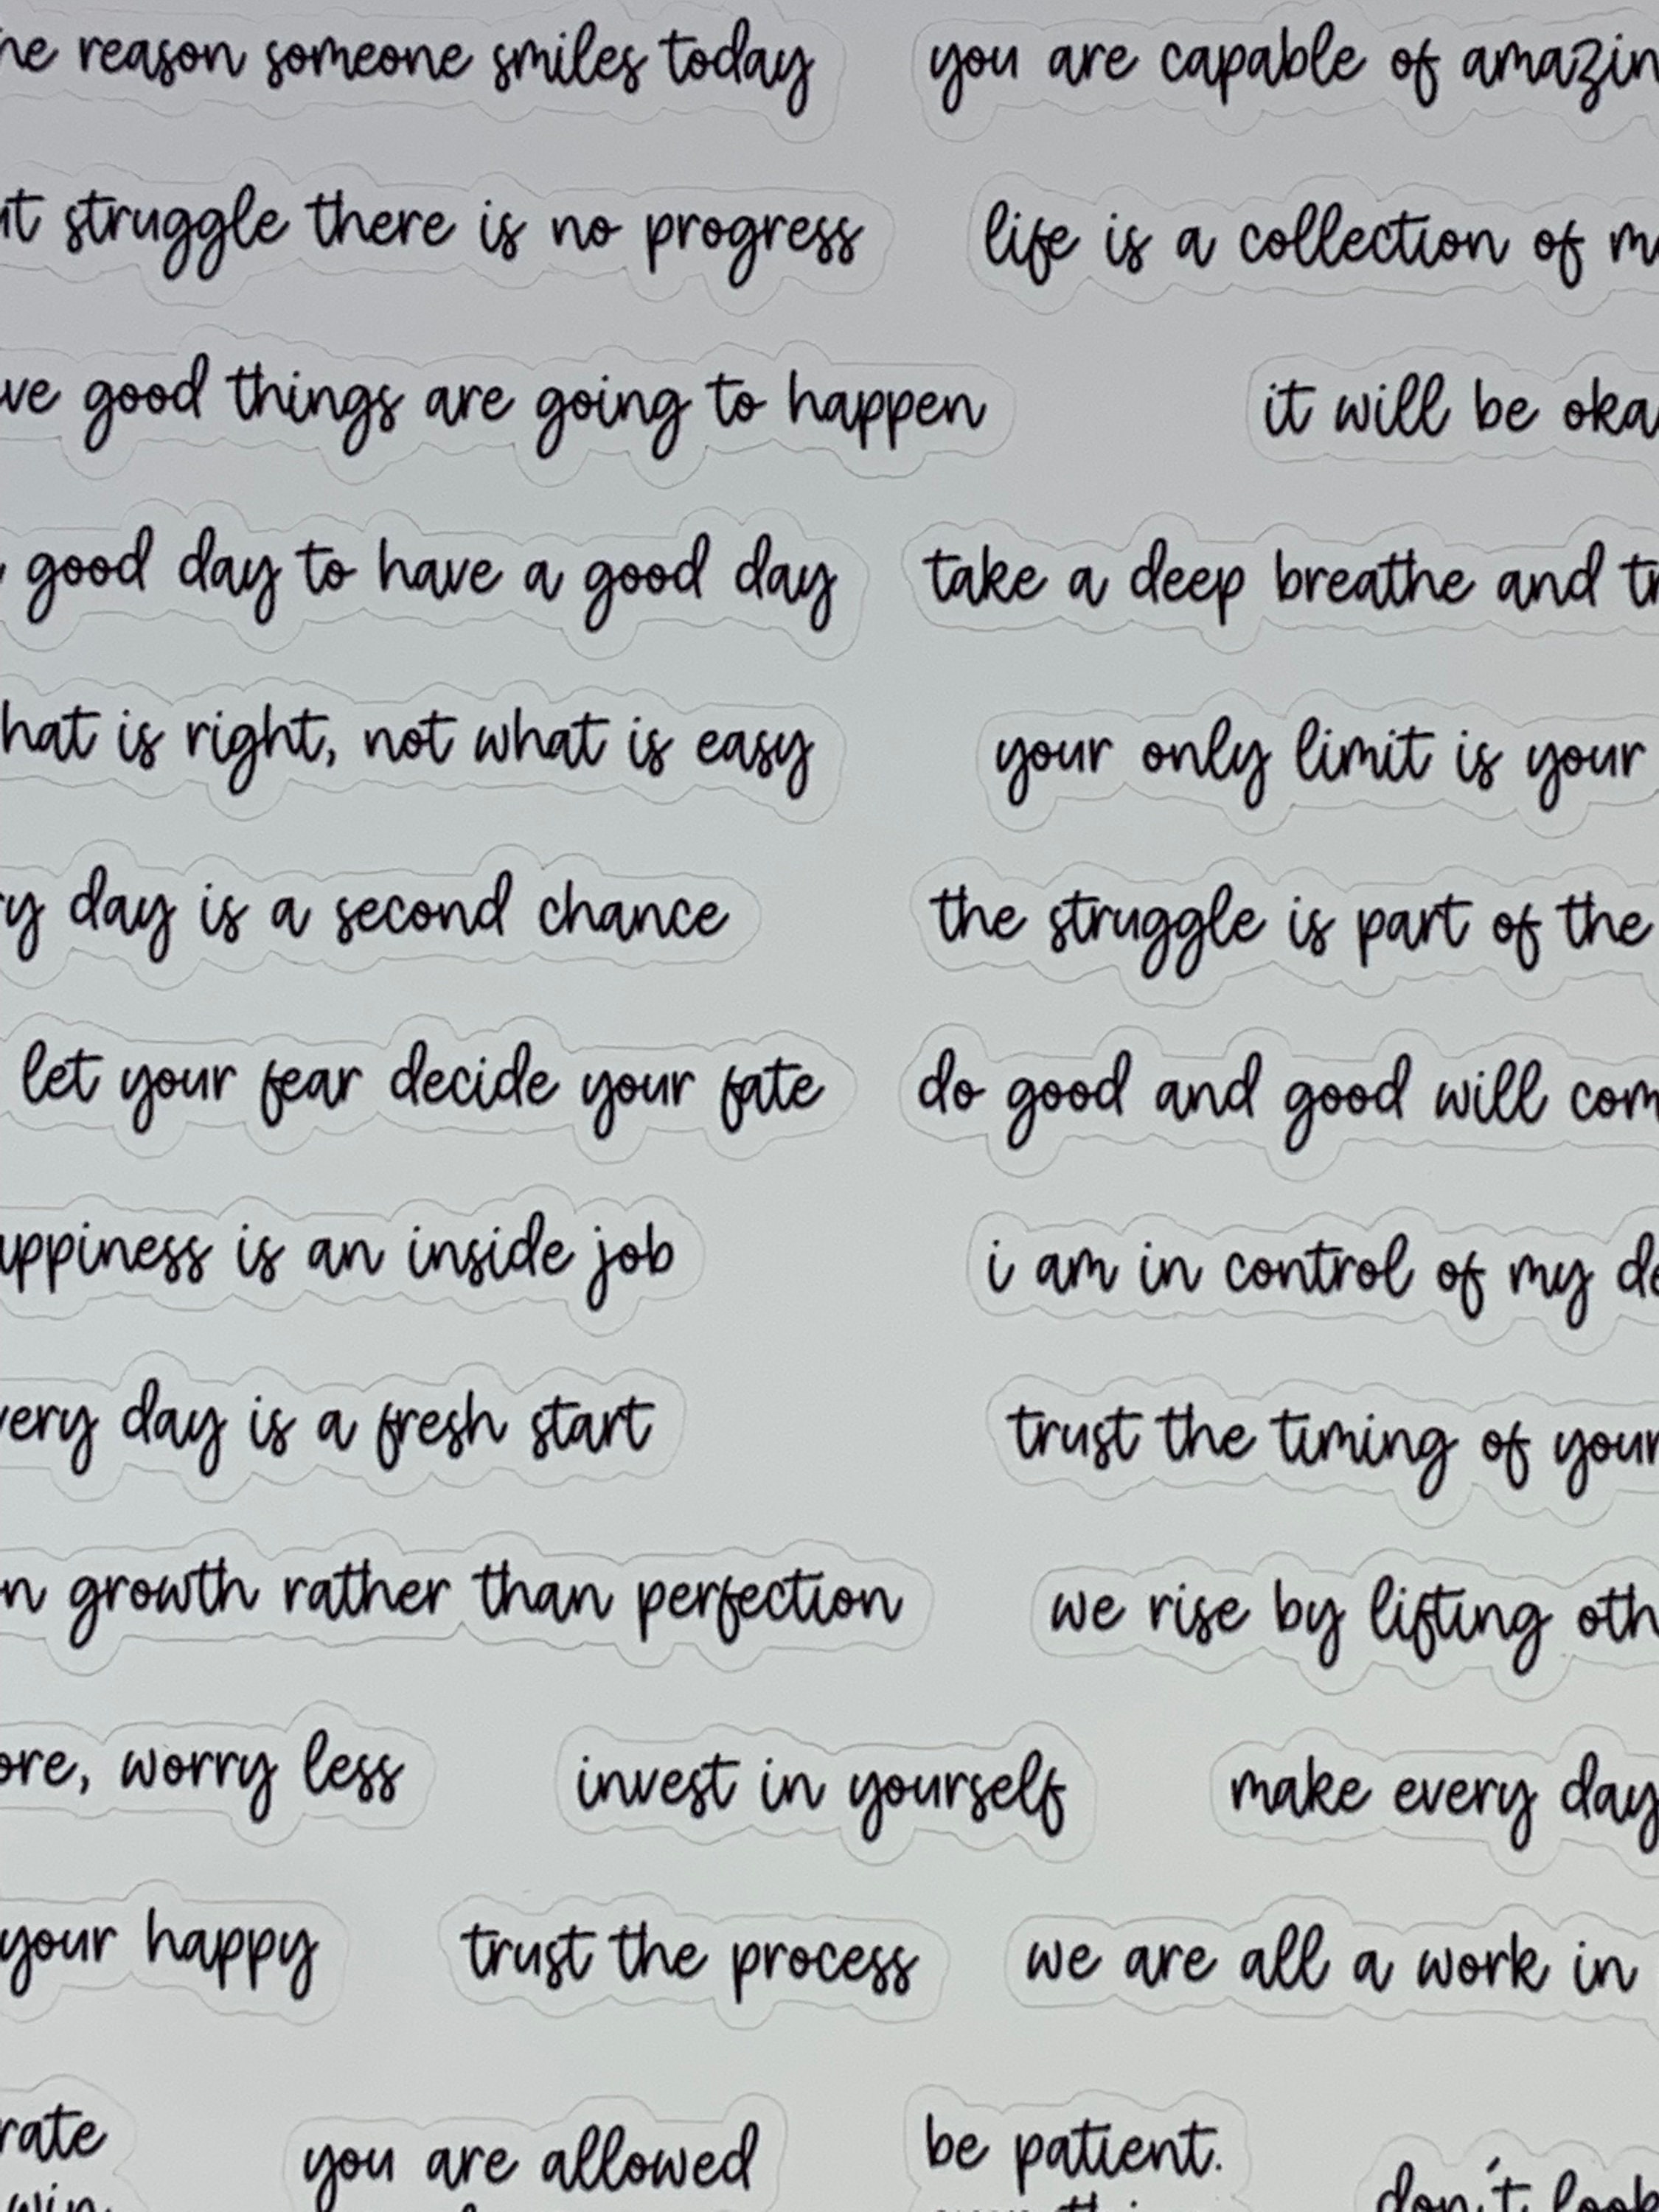 he reason someone smiles today
you are capable of amazin
ut struggle there is no progress
life is a collection of m
ve good things are going to happen
it will be oka
good day to have a good day
take a deep breathe and tr
hat is right, not what is easy
your only limit is your
ry day is a second chance
the struggle is part of the
let your fear decide your fate
do good and good will com
appiness is an inside job
i am in control of my de
very day is a fresh start
trust the timing of your
n growth rather than perfection
we rise by lifting oth
ore, worry less
invest in yourself
make every day
your happy
trust the process
we are all a work in
rate
win
you are allowed
be patient.
don't look